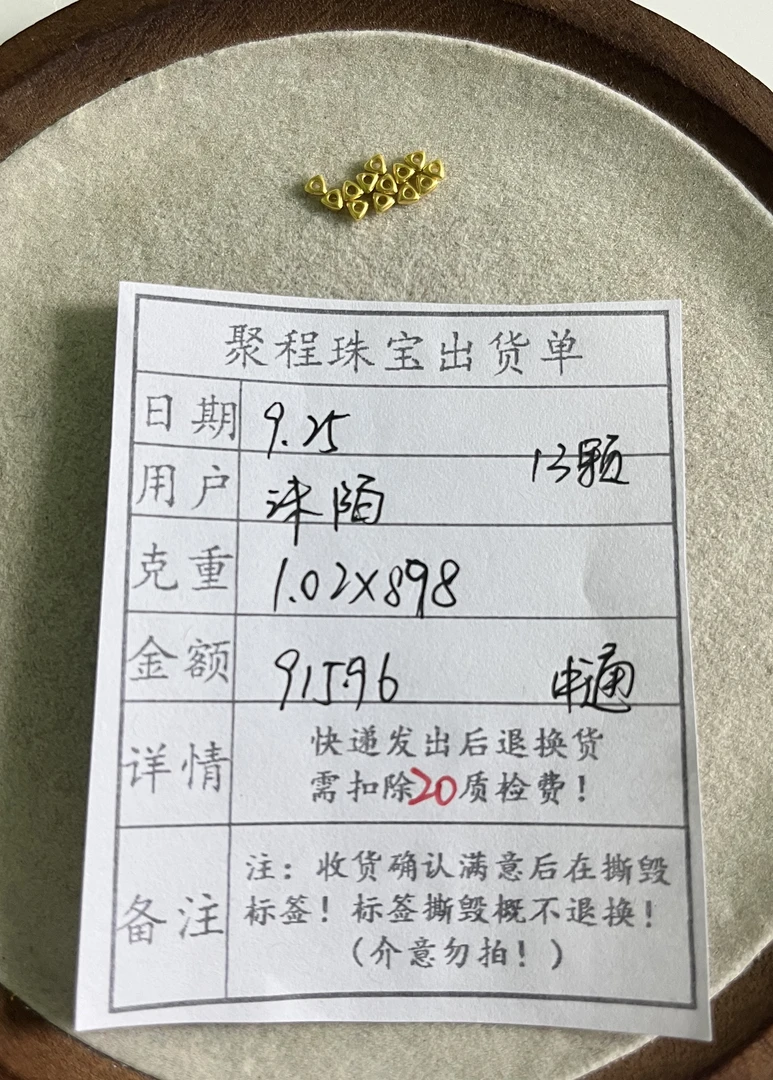 聚程珠宝出货单
日期 9.25
13颗
用户 沐陌
克重 1.02×898
金额 915.96 申通
详情 快递发出后退换货
需扣除20质检费！
备注 注：收货确认满意后在撕毁
标签！标签撕毁概不退换！
（介意勿拍！）